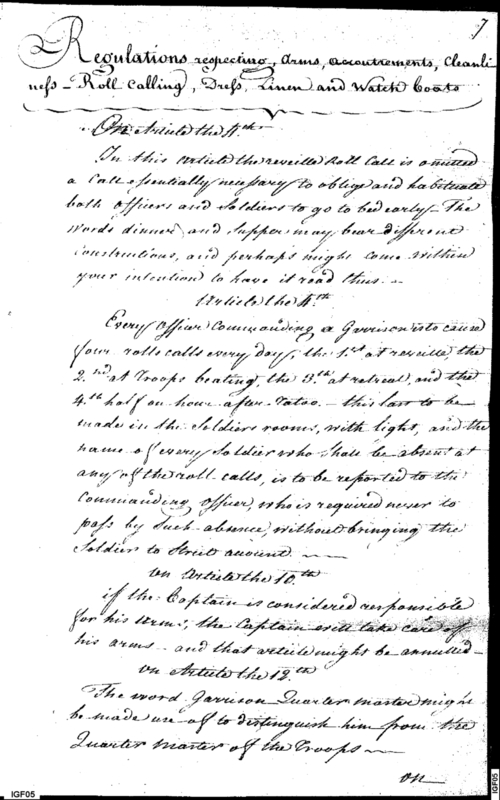 7
Regulations respecting, Arms, accoutrements, Cleanli
ness - Roll Calling, Dress, Linen and Watch Coats
On Article the 4th
In this Article the reveille Roll Call is omitted
a Call essentially necessary to oblige and habituate
both officers and Soldiers to go to bed early - The
words dinner and Supper may bear different
Constructions, and perhaps might come within
your intention to have it read thus. -
Article the 4th
Every officer Commanding a Garrison is to cause
four rolls calls every day, the 1st at reveille, the
2nd at Troops beating, the 3th at retreat, and the
4th half an hour after Tatoo - this last to be
made in the Soldiers rooms, with light, and the
name of every Soldier who shall be absent at
any of the roll calls, is to be reported to the
Commanding officer, who is required never to
pass by Such absence, without bringing the
Soldier to Strict account -
on Article the 10th
if the Captain is considered responsible
for his Arms, the Captain will take care of
his arms - and that article might be annulled -
on Article the 12th
The word Garrison Quarter master might
be made use of to distinguish him from the
Quarter Master of the Troops -
on
IGF05
IGF05